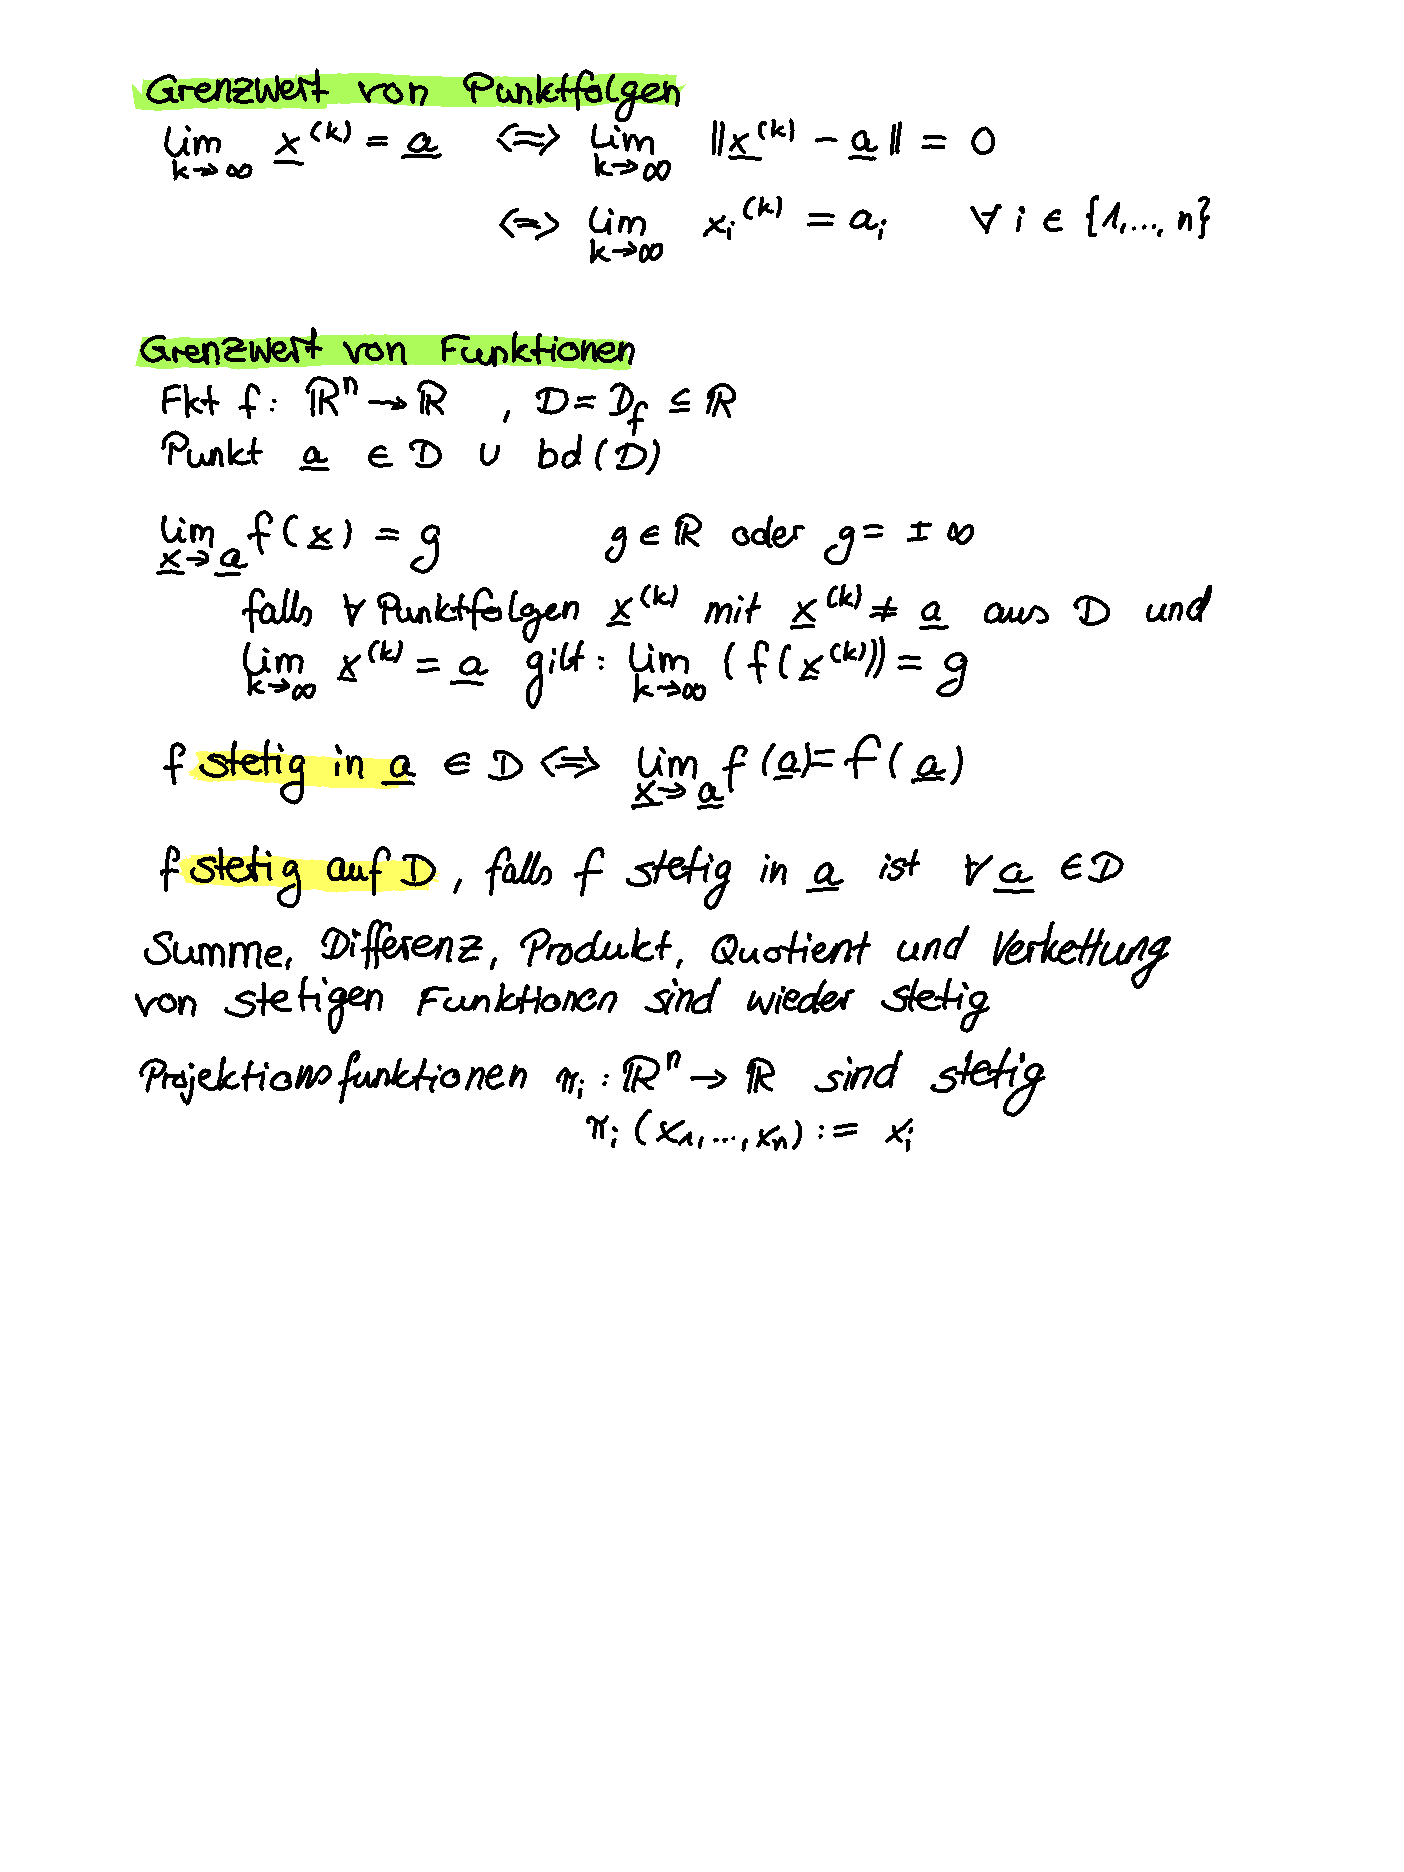 Grenzwert von Punktfolgen
lim k→∞ x̲^(k) = a̲ <=> lim k→∞ ||x̲^(k) - a̲|| = 0
<=> lim k→∞ x_i^(k) = a_i ∀ i ∈ {1,..., n}
Grenzwert von Funktionen
Fkt f: ℝ^n → ℝ , D = D_f ⊆ ℝ
Punkt a̲ ∈ D ∪ bd(D)
lim x̲→a̲ f(x̲) = g g ∈ ℝ oder g = ± ∞
falls ∀ Punktfolgen x̲^(k) mit x̲^(k) ≠ a̲ aus D und
lim k→∞ x̲^(k) = a̲ gilt: lim k→∞ (f(x̲^(k))) = g
f stetig in a̲ ∈ D <=> lim x̲→a̲ f(a̲) = f(a̲)
f stetig auf D, falls f stetig in a̲ ist ∀ a̲ ∈ D
Summe, Differenz, Produkt, Quotient und Verkettung
von stetigen Funktionen sind wieder stetig
Projektionsfunktionen π_i : ℝ^n → ℝ sind stetig
π_i (x_1,...,x_n) := x_i